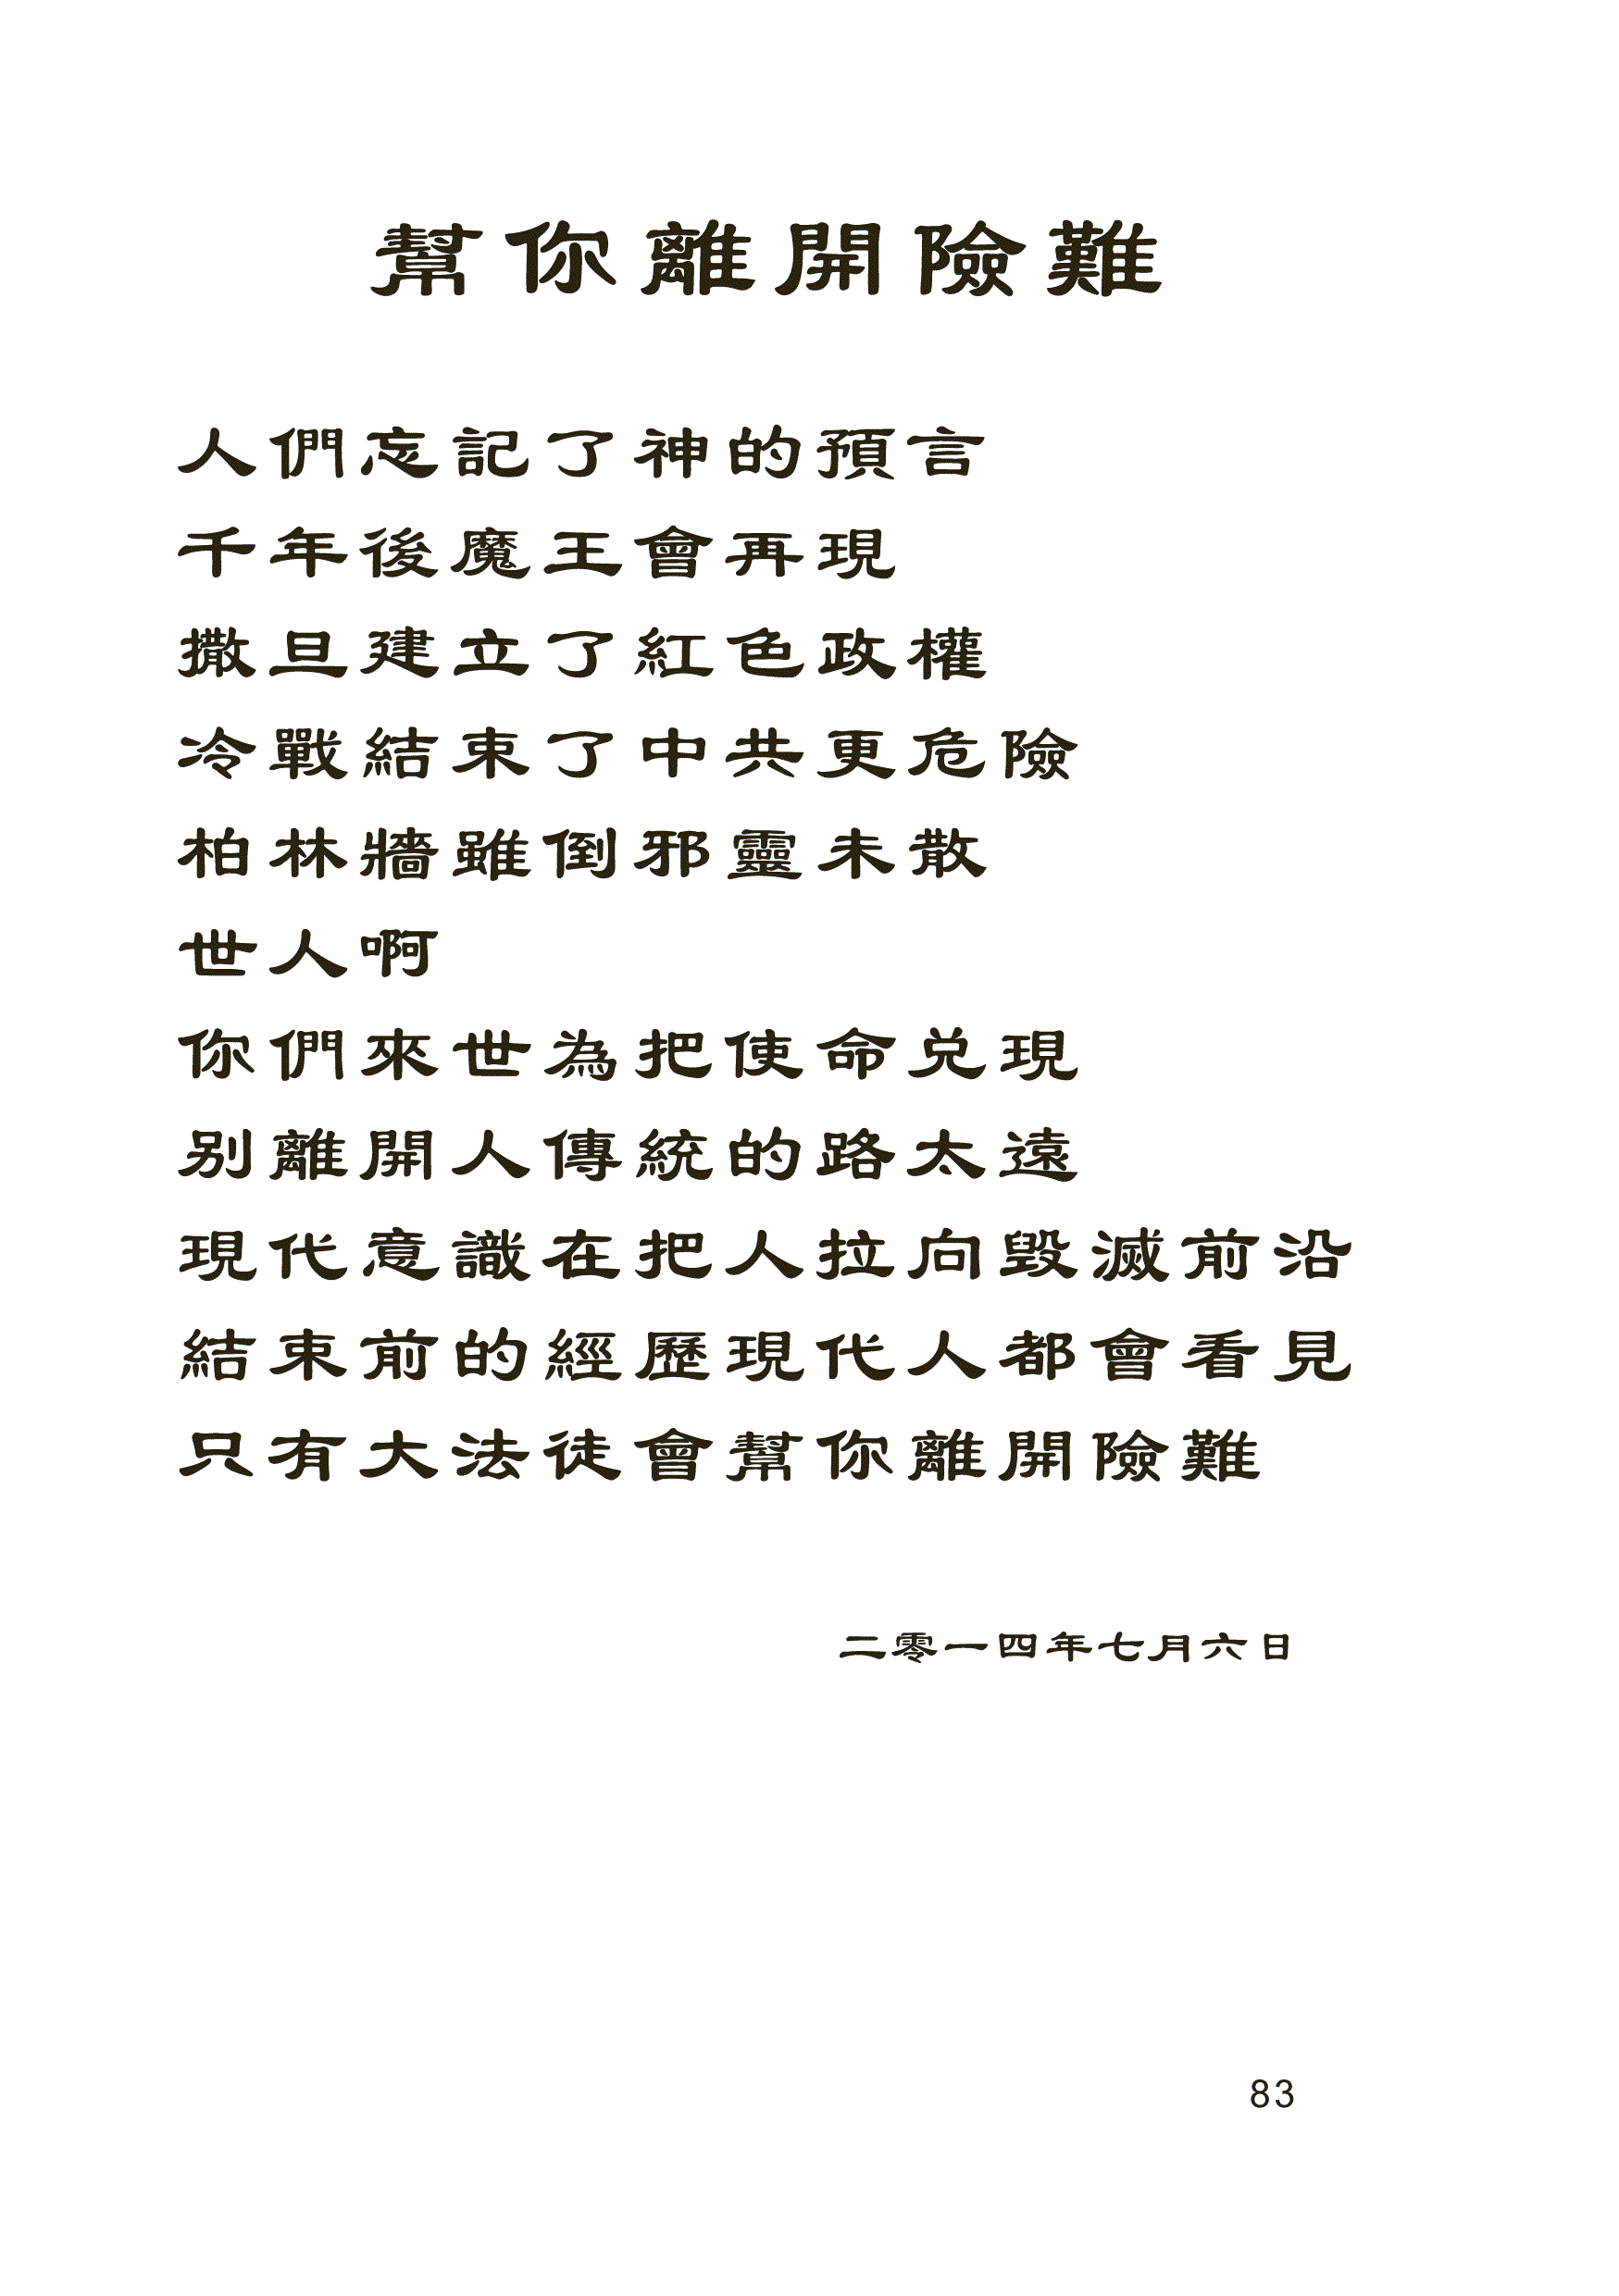 幫你離開險難
人們忘記了神的預言
千年後魔王會再現
撒旦建立了紅色政權
冷戰結束了中共更危險
柏林牆雖倒邪靈未散
世人啊
你們來世為把使命兌現
別離開人傳統的路太遠
現代意識在把人拉向毀滅前沿
結束前的經歷現代人都會看見
只有大法徒會幫你離開險難
二零一四年七月六日
83